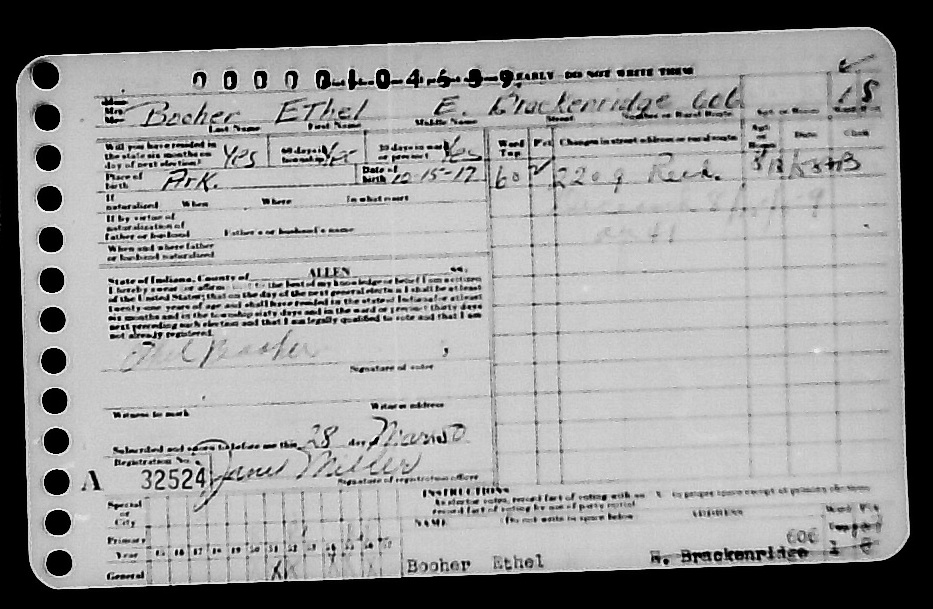 00000104699 EARLY DO NOT WRITE THEM
Booher Ethel E. Brackenridge 606 1 8
Last Name First Name Middle Name Street Number or Rural Route
Will you have resided in the state six months on day of next election? Yes 60 days in township Yes 30 days in ward or precinct Yes Ward Twp. Pct. Changes in street address or rural route Date Clerk
Place of birth Ark. Date of birth 10-15-17 60 2209 Reed.
If naturalized When Where In what court
If by virtue of naturalization of father or husband Father's or husband's name
When and where father or husband naturalized
State of Indiana, County of ALLEN ss:
I hereby swear (or affirm) to the best of my knowledge or belief I am a citizen
of the United States; that on the day of the next general election I shall be at least
twenty-one years of age and shall have resided in the state of Indiana for at least
six months and in the township sixty days and in the ward or precinct thirty days
next preceding such election and that I am legally qualified to vote and that I am
not already registered.
Ethel Booher
Signature of voter
Witness to mark Witness address
Subscribed and sworn to before me this 28 day Mar 50
Registration No.
A 32524 Janet Miller
Signature of registration officer
INSTRUCTIONS
As elector votes, record fact of voting with an "X" in proper space except at primary elections
record fact of voting by use of party initial
Special or City NAME (Do not write in space below) ADDRESS Ward Pct.
Primary
Year 45 46 47 48 49 50 51 52 53 54 55 56 57 606
General X X Booher Ethel E. Brackenridge 1 8